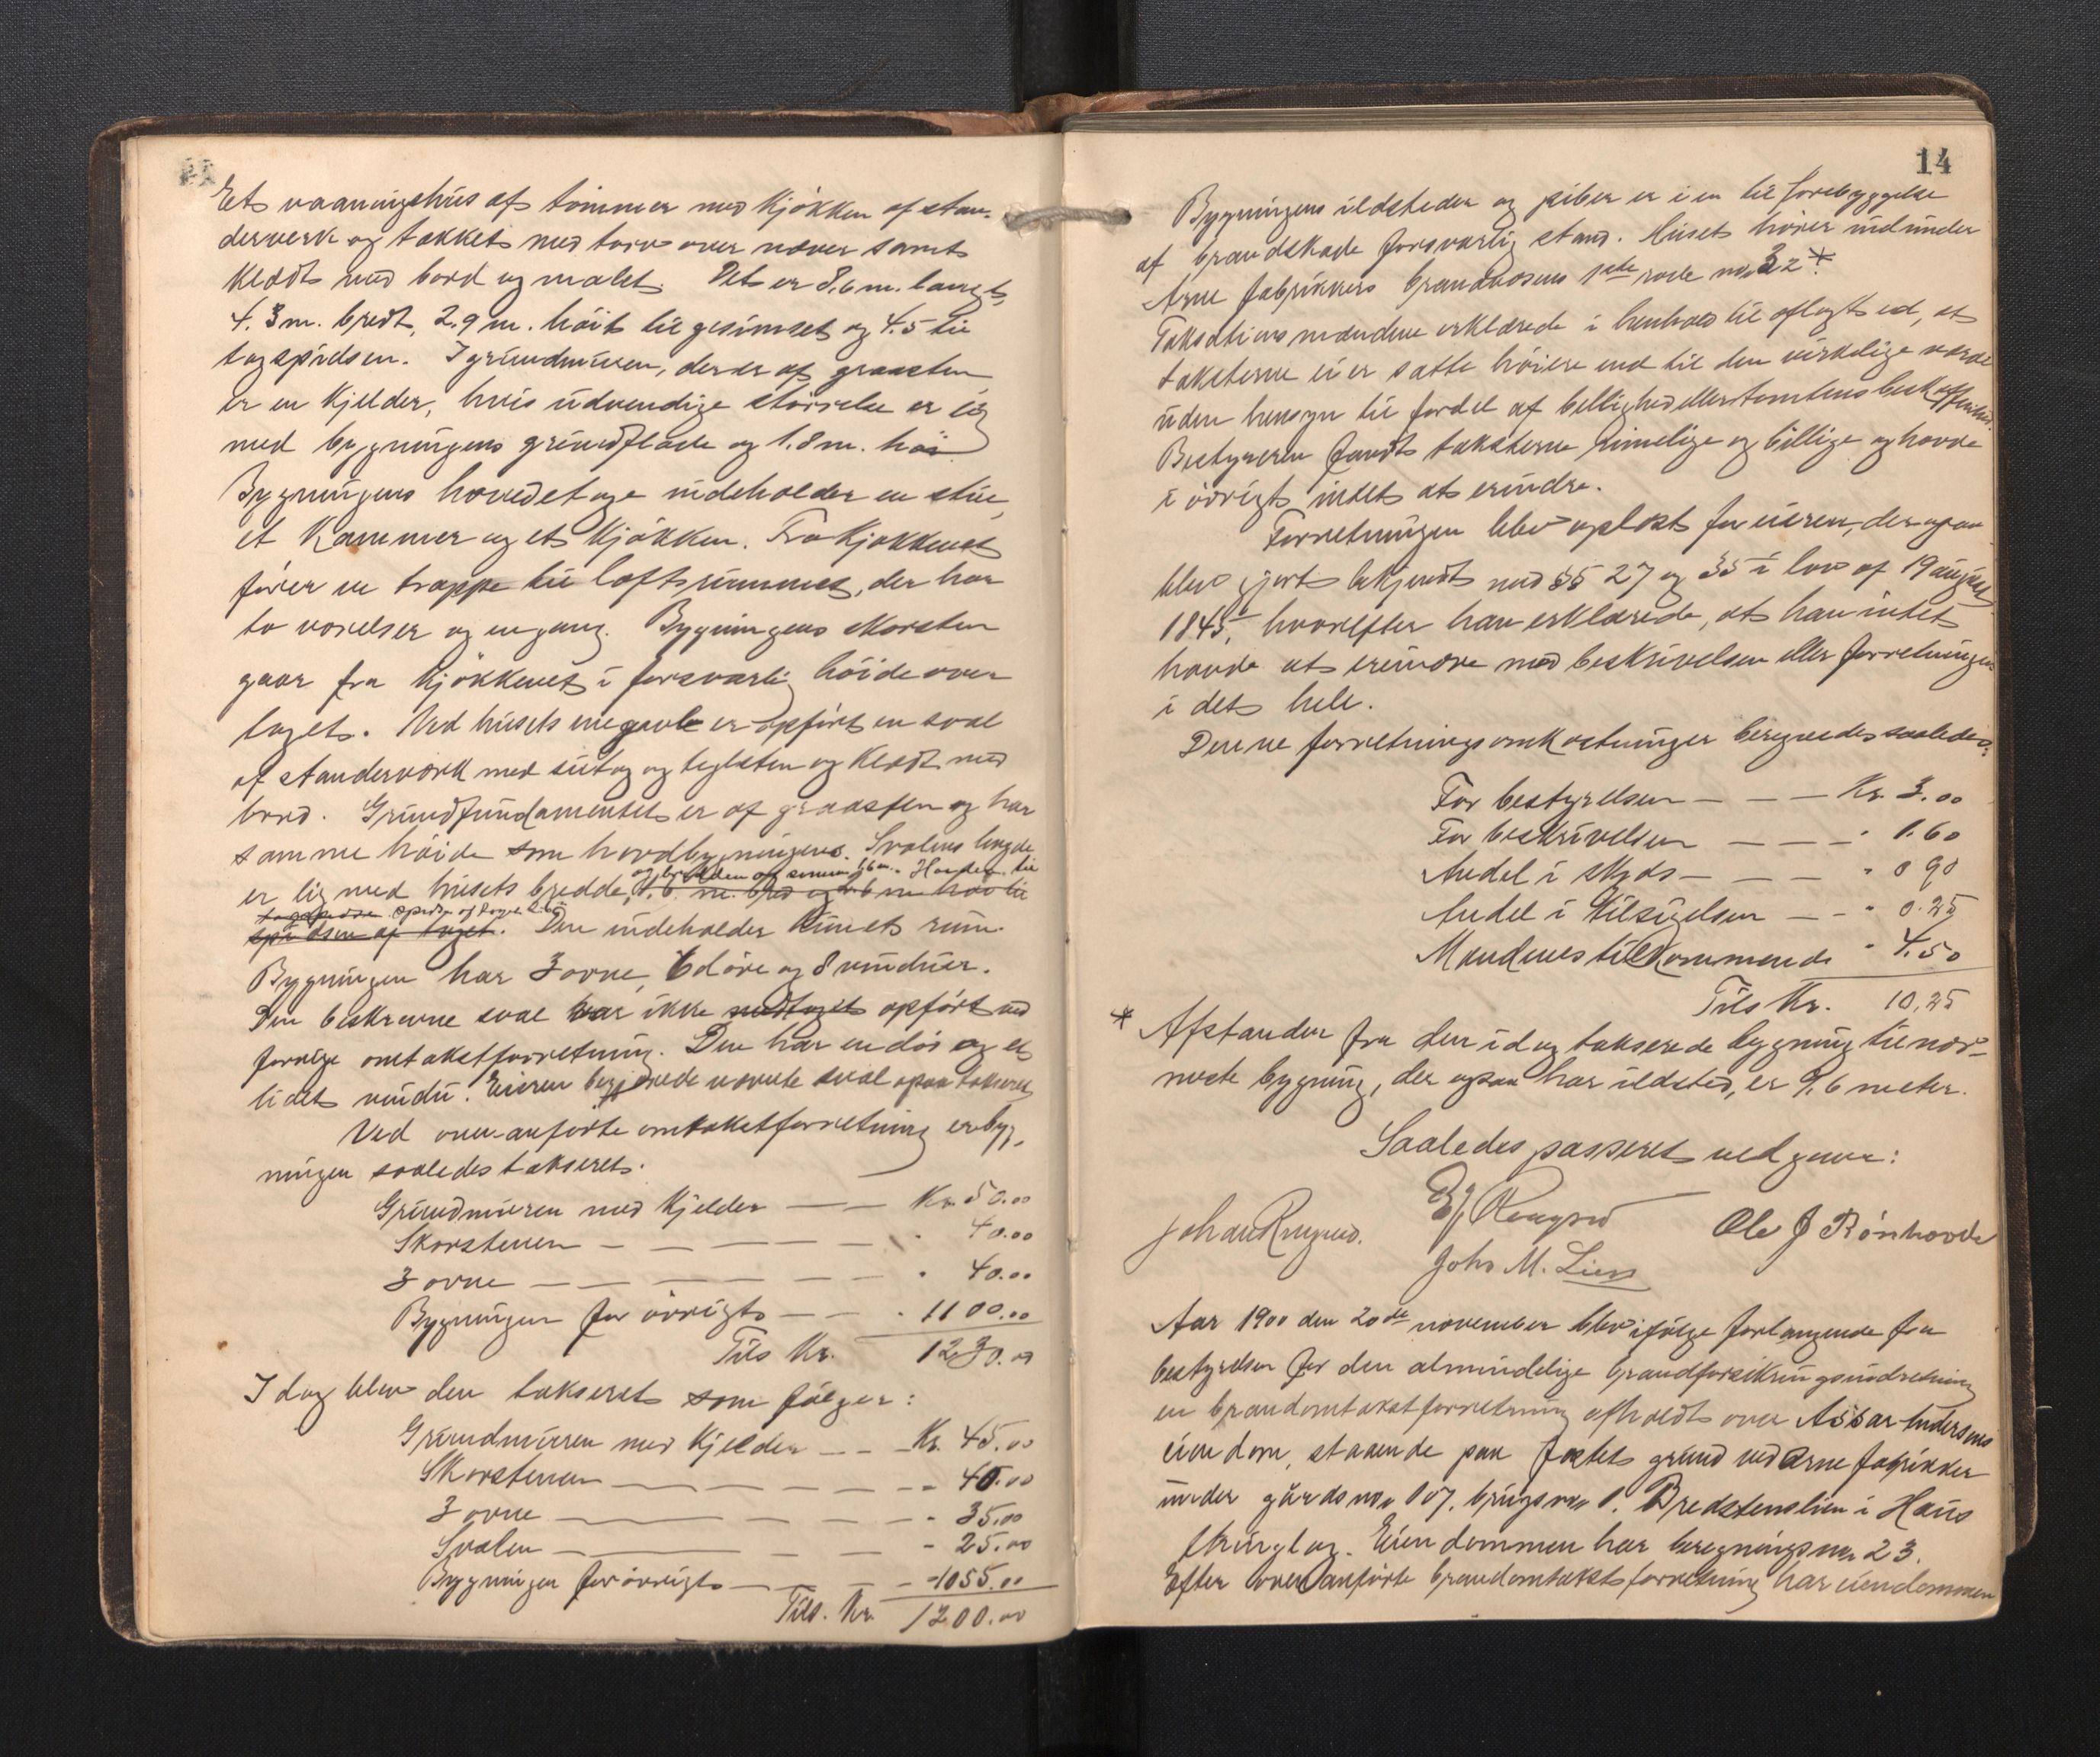 Et vaaningshus af tømmer med kjøkken af stan-
derverk og tækket med torv over næver samt
klædt med bord og malet. Det er 8,6 m. langt,
4.3 m. bredt, 2.9 m. høit til gesimset og 4.5 til
tagspidsen. I grundmuren, der er af graasten
er en kjelder, hvis udvendige størrelse er lig
med bygningens grundflade og 1.8 m. høi
Bygningens hovedetage indeholder en stue,
et kammer og et kjøkken. Fra kjøkkenet
fører en trappe til loftsrummet, der har
to værelser og en gang. Bygningens skorsten
gaar fra kjøkkenet i forsvarlig høide over
taget. Ved husets ene gavl er opført en sval
af standerværk med sutag og teglsten og klædt med
bord. Grundfundamentet er af graasten og har
samme høide som hovdbygningens. Svalens længde
og bredden af samme 1,6 m. Høiden til
er lig med husets bredde, 1.6. m. bred og 2.6 m høi til
spidsen af taget
spidsen af taget. Den indeholder kun et rum.
Bygningen har 3 ovne, 6 døre og 8 vinduer.
Den beskrevne sval var ikke medtaget opført ved
forrige omtakstforretning. Den har en dør og et
lidet vindu. Eieren begjærede nævnte sval ogsaa takseret
Ved ovenanførte omtakstforretning er byg-
ningen saaledes takseret.
Grundmuren med kjelder — — Kr. 50.00
Skorstenen — — — — — " 40.00
3 ovne — — — — — " 40.00
Bygningen for øvrigt — — " 1100.00
Tils Kr. 1230.00
I dag blev den takseret som følger:
Grundmuren med kjelder — — Kr. 45.00
Skorstenen — — — — - 40.00
3 ovne — — — — - 35.00
Svalen — — — — - 25.00
Bygningen forøvrigt — — — - 1055.00
Tils. Kr. 1200.00
14
Bygningens ildsteder og piber er i en til forebyggelse
af brandskade forsvarlig stand. Huset hører ind under
Arne fabrikkers brandvæsens 1ste rode no. 32*.
Taksationsmændene erklærede i henhold til aflagt ed, at
taksterne ei er satte høiere end til den virkelige værdi
uden hensyn til fordel af bellighed eller tomtens beskaffenhed.
Bestyreren fandt taksterne rimelige og billige og havde
i øvrigt intet at erindre.
Forretningen blev oplæst for eieren, der ogsaa
blev gjort bekjendt med §§ 27 og 35 i lov af 19 august
1845, hvorefter han erklærede, at han intet
havde at erindre mod beskrivelsen eller forretningen
i det hele.
Denne forretnings omkostninger beregnedes saaledes:
For bestyrelsen — — — Kr. 3.00
For beskrivelsen — — — " 1.60
Andel i skyds — — — " 0 90
Andel i tilsigelsen — — " 0.25
Mændenes tilkommende " 4.50
Tils Kr. 10,25
* Afstanden fra den idag takserede bygning til nær-
meste bygning, der ogsaa har ildsted, er 9,6 meter.
Saaledes passeret vedgaaes:
Johs M. Lien
Ole J Rønhovde
Aar 1900 den 20de november blev ifølge forlangende fra
bestyrelsen for den almindelige brandforsikringsindretning
en brandomtakstforretning afholdt over Assar Andersens
eiendom, staaende paa fæstet grund ved Arne fabrikker
under gårdsno. 107, brugsno. 1. Bredstenslien i Haus
thinglag. Eiendommen har beregningsno 23.
Efter ovenanførte brandomtakstforretning har eiendommen